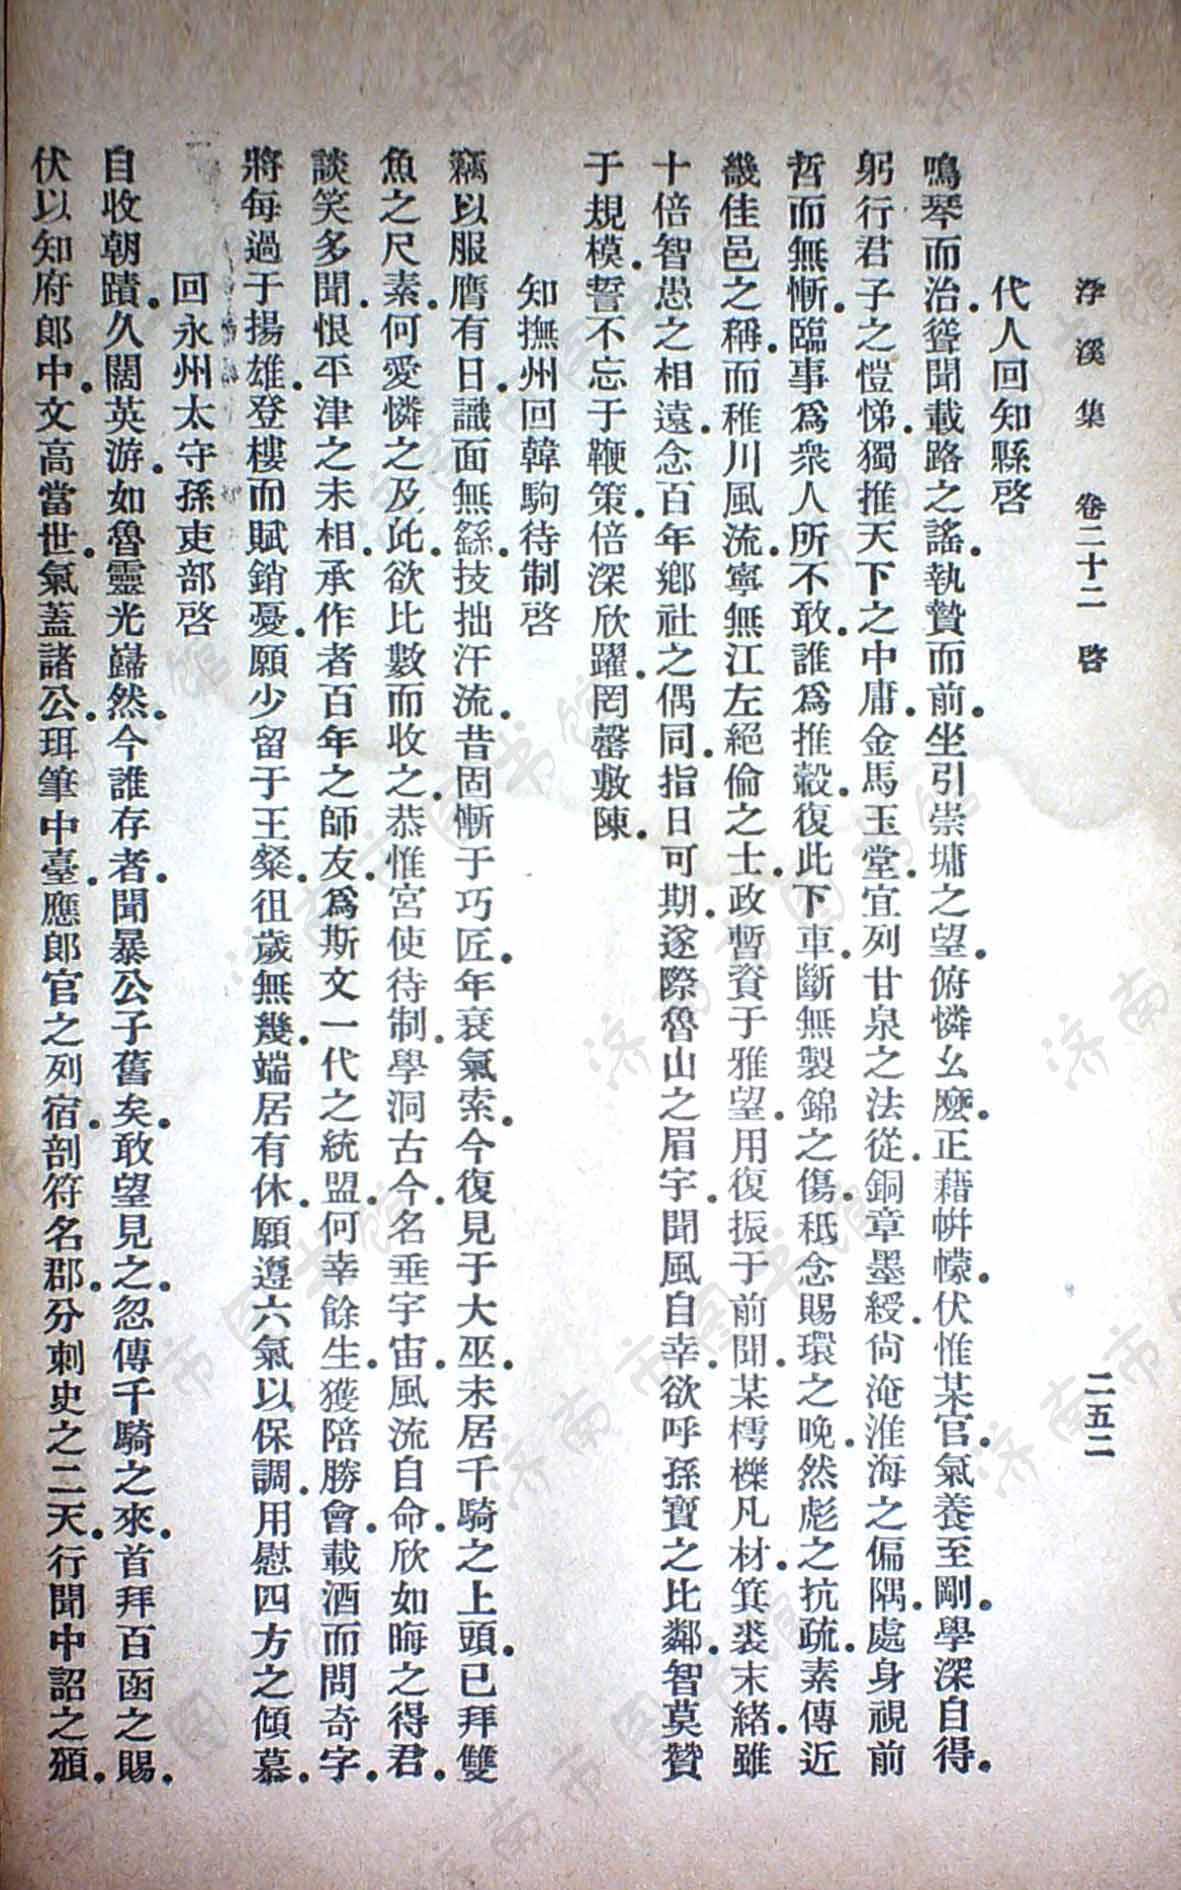 浮溪集 卷二十二 啓 二五二
代人回知縣啓
鳴琴而治。聳聞載路之謠。執贄而前。坐引崇墉之望。俯憐幺麼。正藉帡幪。伏惟某官。氣養至剛。學深自得。
躬行君子之愷悌。獨推天下之中庸。金馬玉堂。宜列甘泉之法從。銅章墨綬。尙淹淮海之偏隅。處身視前
哲而無慚。臨事爲衆人所不敢。誰爲推轂。復此下車。斷無製錦之傷。秪念賜環之晚。然彪之抗疏。素傳近
畿佳邑之稱。而稚川風流。寧無江左絕倫之士。政暫資于雅望。用復振于前聞。某樗櫟凡材。箕裘末緒。雖
十倍智愚之相遠。念百年鄉社之偶同。指日可期。遂際魯山之眉宇。聞風自幸。欲呼孫寶之比鄰。智莫贊
于規模。誓不忘于鞭策。倍深欣躍。罔罄敷陳。
知撫州回韓駒待制啓
竊以服膺有日。識面無繇。技拙汗流。昔固慚于巧匠。年衰氣索。今復見于大巫。未居千騎之上頭。已拜雙
魚之尺素。何愛憐之及此。欲比數而收之。恭惟宮使待制。學洞古今。名垂宇宙。風流自命。欣如晦之得君。
談笑多聞。恨平津之未相。承作者百年之師友。爲斯文一代之統盟。何幸餘生。獲陪勝會。載酒而問奇字。
將每過于揚雄。登樓而賦銷憂。願少留于王粲。徂歲無幾。端居有休。願遵六氣以保調。用慰四方之傾慕。
回永州太守孫吏部啓
自收朝蹟。久闊英游。如魯靈光巋然。今誰存者。聞暴公子舊矣。敢望見之。忽傳千騎之來。首拜百函之賜。
伏以知府郎中。文高當世。氣蓋諸公。珥筆中臺。應郎官之列宿。剖符名郡。分刺史之二天。行聞中詔之頒。